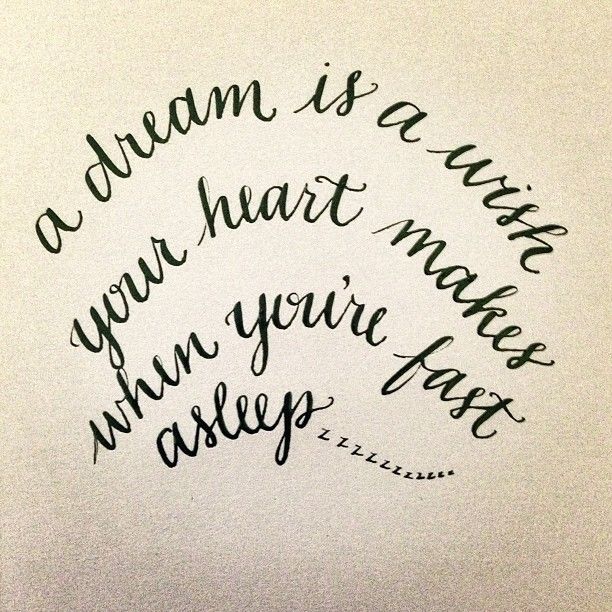 a dream is a wish
your heart makes
when you're fast
asleep zzzzzzzzzz....